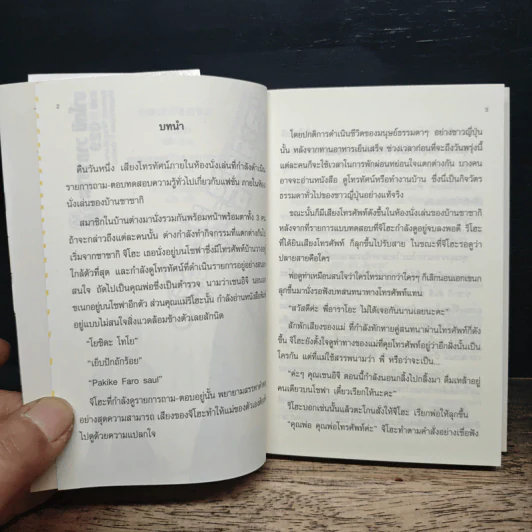 2
บทนำ
คืนวันหนึ่ง เสียงโทรทัศน์ภายในห้องนั่งเล่นที่กำลังดำเนิน
รายการถาม-ตอบทดสอบความรู้ทั่วไปเกี่ยวกับแฟชั่น ภายในห้อง
นั่งเล่นของบ้านซาซากิ
สมาชิกในบ้านต่างมานั่งรวมกันพร้อมหน้าพร้อมตาทั้ง 3 คน
ถ้าจะกล่าวถึงแต่ละคนนั้น ต่างกำลังทำกิจกรรมที่แตกต่างกันไป
เริ่มจากซาซากิ จิโฮะ เธอนั่งอยู่บนโซฟาซึ่งมีโทรศัพท์บ้านวาง
ใกล้ตัวที่สุด และกำลังดูโทรทัศน์ที่ดำเนินรายการอยู่อย่างสน
สนใจ ถัดไปเป็นคุณพ่อซึ่งเป็นตำรวจ นามว่าเซนอิจิ นอน
ขเนกอยู่บนโซฟาอีกตัว ส่วนคุณแม่ริโฮะนั้น กำลังอ่านหนังสือ
อยู่แบบไม่สนใจสิ่งแวดล้อมข้างตัวเลยสักนิด
"โยชิดะ โทโย"
"เย็บปักถักร้อย"
"Pakike Faro saul"
จิโฮะที่กำลังดูรายการถาม-ตอบอยู่นั้น พยายาม
อย่างสุดความสามารถ เสียงของจิโฮะทำให้แม่ของตัวเอง
ไปดูด้วยความแปลกใจ
3
โดยปกติการดำเนินชีวิตของมนุษย์ธรรมดาๆ อย่างชาวญี่ปุ่น
นั้น หลังจากทานอาหารเย็นเสร็จ ช่วงเวลาก่อนที่จะถึงวันพรุ่งนี้
แต่ละคนก็จะใช้เวลาในการพักผ่อนหย่อนใจแตกต่างกัน บางคน
อาจจะอ่านหนังสือ ดูโทรทัศน์หรือทำงานบ้าน ซึ่งนี่เป็นกิจวัตร
ธรรมดาทั่วไปของชาวญี่ปุ่นอย่างแท้จริง
ขณะนั้นก็มีเสียงโทรศัพท์ดังขึ้นในห้องนั่งเล่นของบ้านซาซากิ
หลังจากที่รายการแบบทดสอบที่จิโฮะกำลังดูอยู่จบลงพอดี ริโฮะ
ที่ได้ยินเสียงโทรศัพท์ ก็ลุกขึ้นไปรับสาย ในขณะที่จิโฮะรอดูว่า
ปลายสายคือใคร
พ่อดูท่าเหมือนสนใจว่าใครโทรมากกว่าใครๆ ก็เลิกนอนเอกเขนก
ลุกขึ้นมานั่งรอฟังบทสนทนาทางโทรศัพท์แทน
"สวัสดีค่ะ พี่อาราโอะ ไม่ได้เจอกันนานเลยนะคะ"
สักพักเสียงของแม่ ที่กำลังทักทายคู่สนทนาผ่านโทรศัพท์ก็ดัง
ขึ้น จิโฮะยังตั้งใจดูท่าทางของแม่ที่คุยโทรศัพท์อยู่ว่าอีกฝั่งนั้นเป็น
ใครกัน แต่ที่แม่ใช้สรรพนามว่า พี่ หรือว่าจะเป็น...
"ค่ะๆ คุณเซนอิจิ ตอนนี้กำลังนอนกลิ้งไปกลิ้งมา ดื่มเหล้าอยู่
คนเดียวบนโซฟา เดี๋ยวเรียกให้นะคะ"
ริโฮะบอกเช่นนั้นแล้วตะโกนสั่งให้จิโฮะ เรียกพ่อให้ลุกขึ้น
"คุณพ่อ คุณพ่อโทรศัพท์ค่ะ" จิโฮะทำตามคำสั่งอย่างเชื่อฟัง